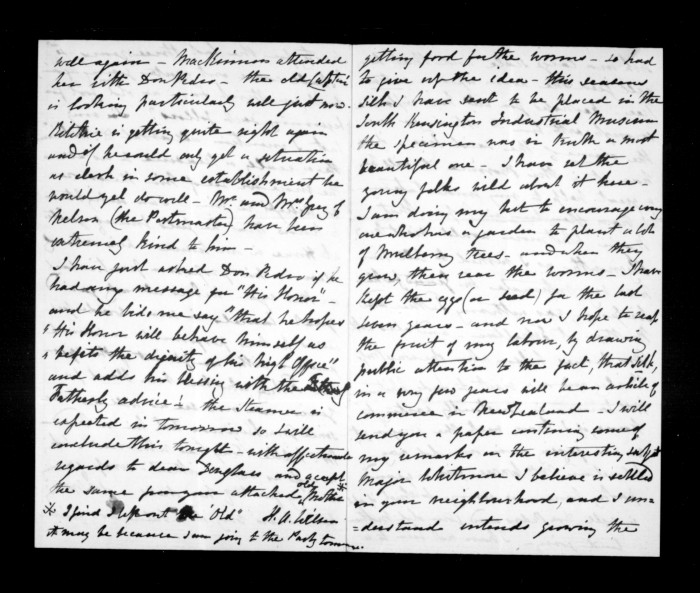 well again - MacKinnon attended
her with Don Pedro - the old Captn
is looking particularly well just now.
Ritchie is getting quite right again
and if he could only get a situation
as clerk in some establishment he
would yet do well - Mr. and Mrs of
Nelson (the Postmaster) have been
extremely kind to him -
I have just asked Don Pedro if he
had any message for "His Honor" -
and he bids me say "that he hopes
" His Honor will behave himself as
" befits the dignity of his high Office"
and adds his blessing with the
Fatherly advice! the Steamer is
expected in tomorrow so I will
conclude this tonight - with affectionate
regards to dear Douglass and accept
the same from your attached old * Mother
H. A. Wilson
* I find I left out the "Old"
it may be because I am going to the Party tomorrow.
getting food for the worms - so had
to give up the idea - this seasons
silk I have sent to be placed in the
South Kensington Industrial Museum
the specimen was in truth a most
beautiful one - I have set the
young folks wild about it here -
I am doing my best to encourage every
one who has a garden to plant a lot
of Mulberry trees - and when they
grow, then rear the worms - I have
kept the eggs (or seed) for the last
seven years - and now I hope to reap
the fruit of my labour, by drawing
public attention to the fact, that silk,
in a very few years will be an article of
commerce in New Zealand - I will
send you a paper containing some of
my remarks on the interesting subject
Major Whitmore I believe is settled
in your neighbourhood, and I un=
=derstand intends growing the